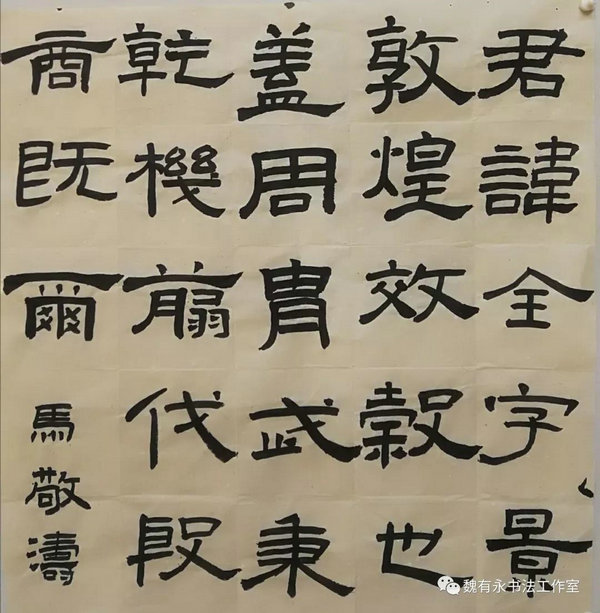 君諱全字景
敦煌效穀也
蓋周胄武秉
乾機翦伐殷
商既爾
馬敬濤
魏有永书法工作室